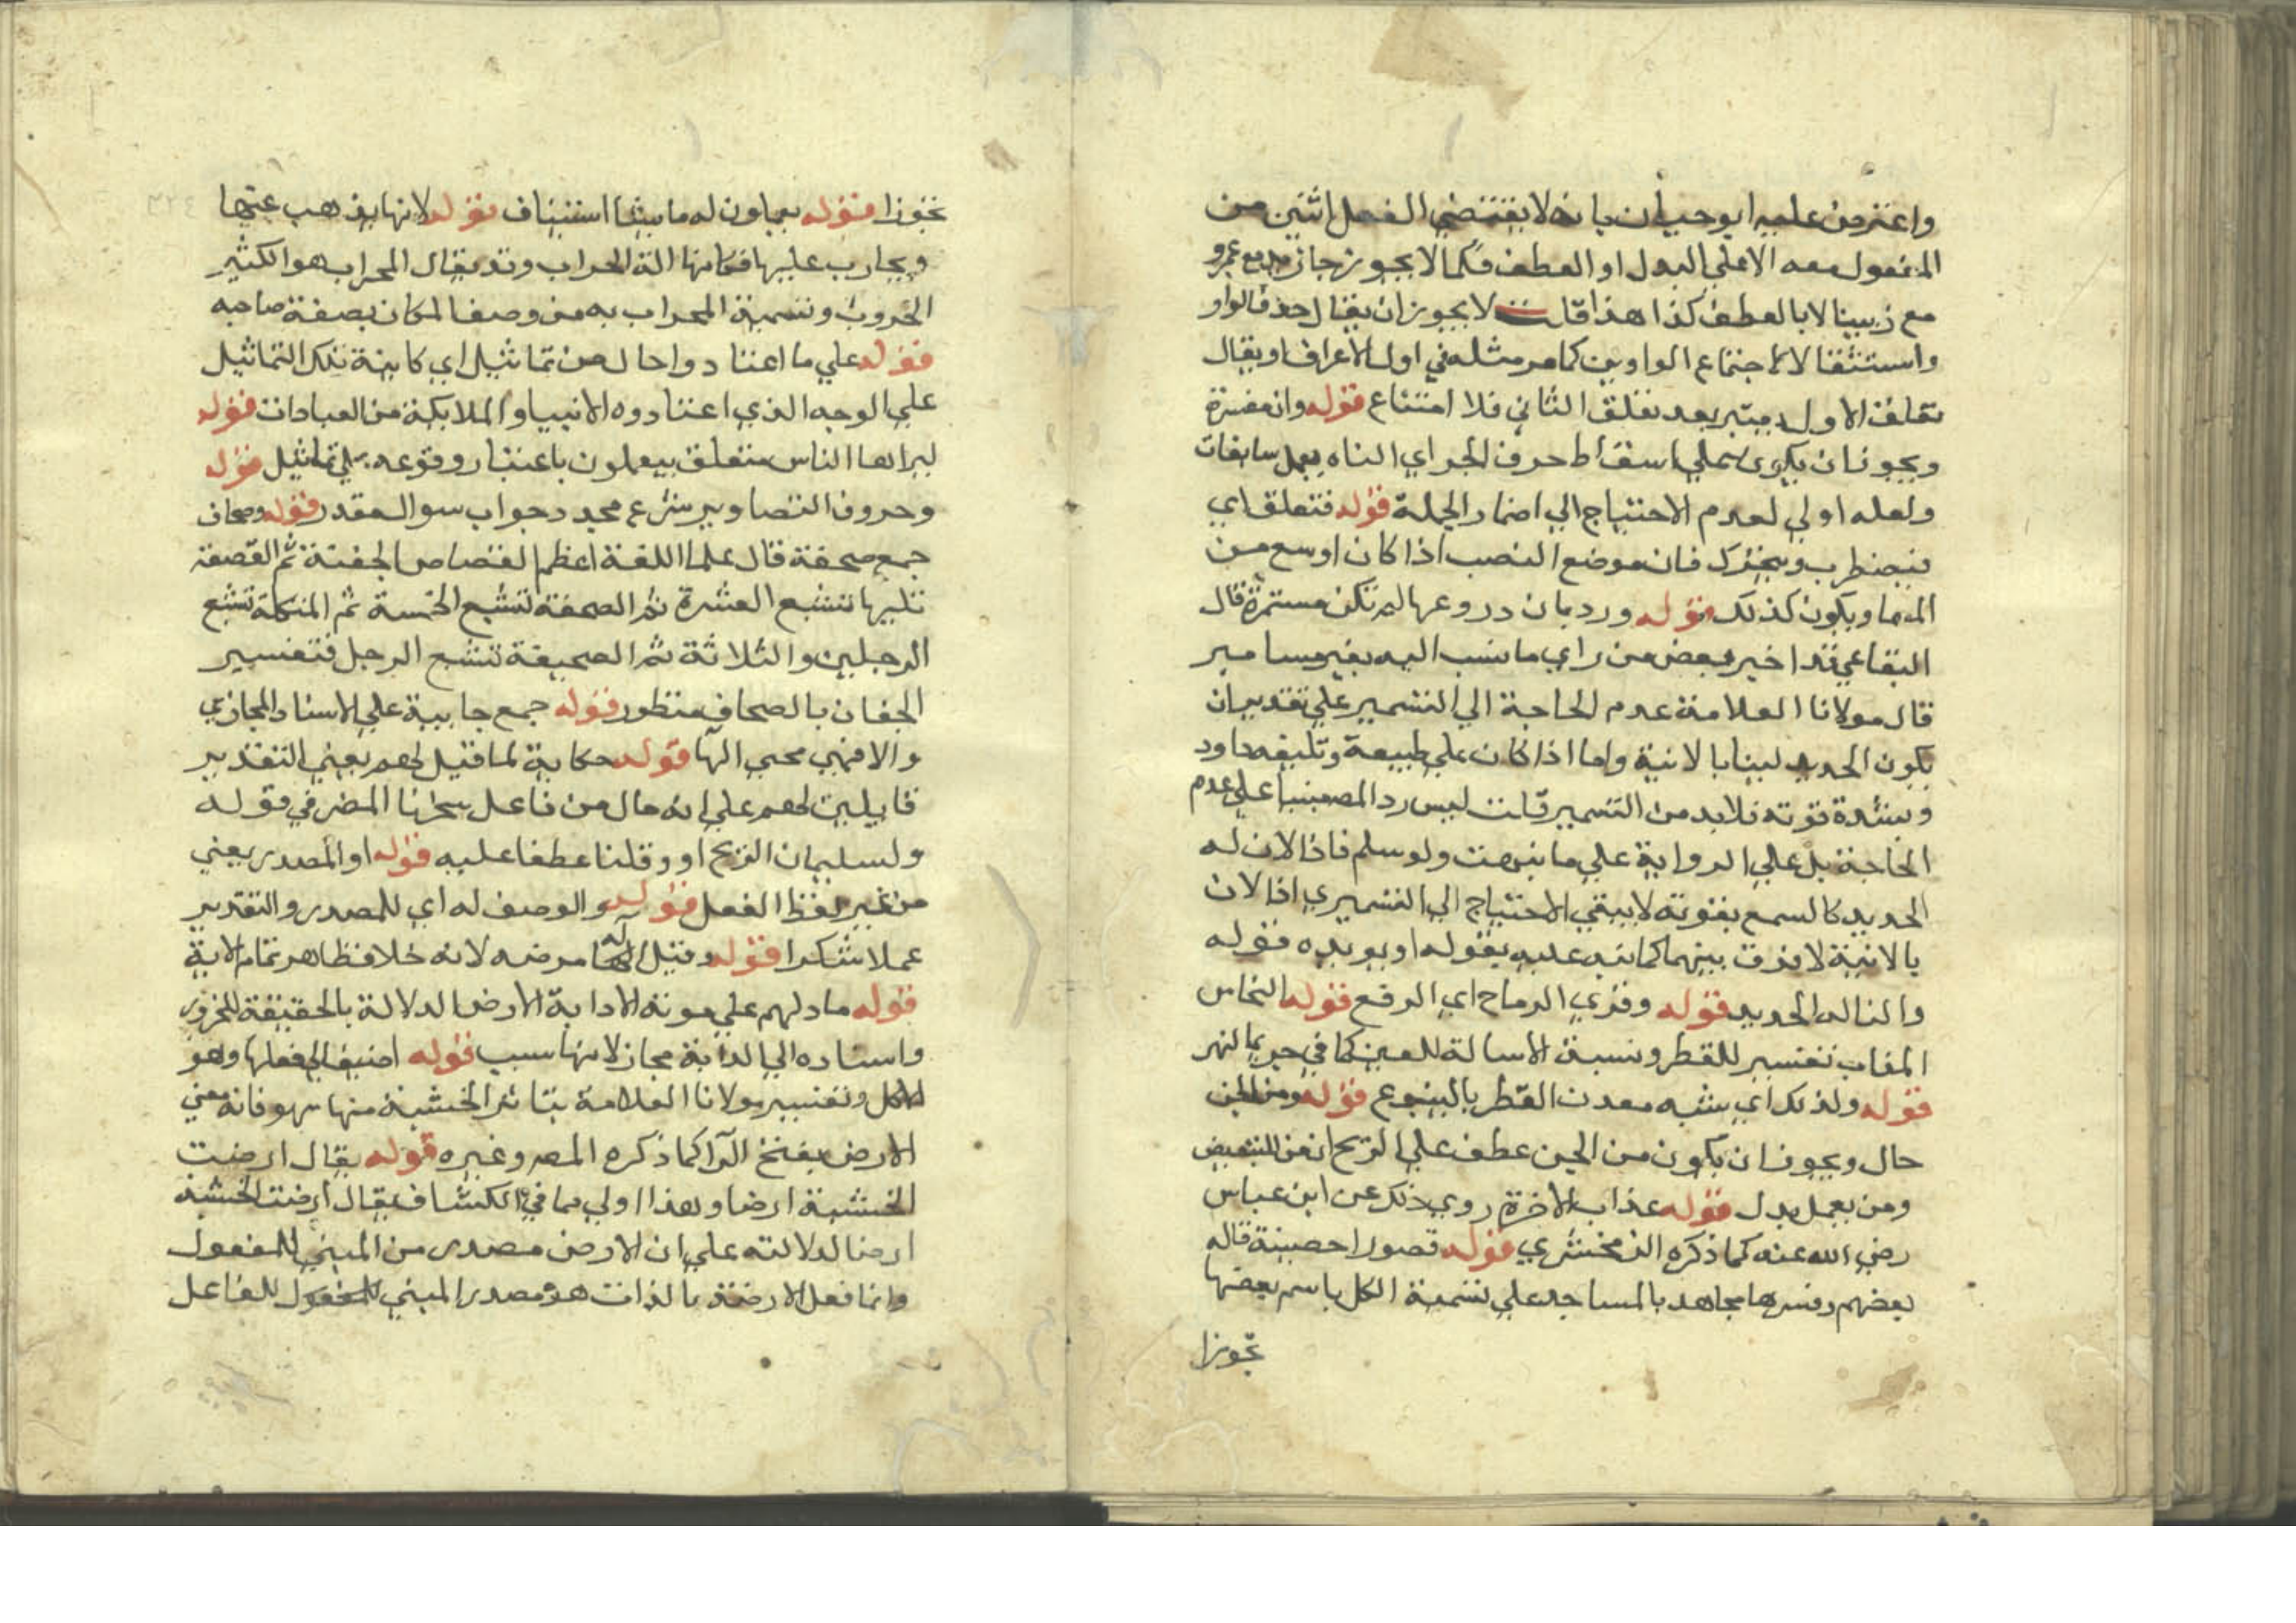 واعترض عليه ابو حيان بانه لا يقتضي الفعل اثنين من
المفعول معه الا علي البدل او العطف فكما لا يجوز جاز يد مع عمرو
مع زينب الا بالعطف كذا هذا قلت لا يجوز ان يقال حذف الواو
واستثقالا لاجتماع الواوين كما مر مثله في اول الاعراف او يقال
تعلق الاول يعتبر بعد تعلق الثاني فلا امتناع قوله وان مفسرة
ويجوز ان يكون علي اسقاط حرف الجر اي الناه يعمل سابغات
ولعله اولي لعدم الاحتياج الي اضمار الجملة قوله فتعلق اي
فيضطرب ويتحرك فان موضع النصب اذا كان اوسع من
المسما ويكون كذلك قوله ورد بان دروعها لم تكن مستمرة قال
البقاعي قد اخبر بعض من راي ما نسب اليه بغير مسامير
قال مولانا العلامة عدم الحاجة الي التسمير علي تقدير ان
يكون الحديد لينا بالانية واما اذا كان علي طبيعة وتليفه داود
وبشدة قوته فلا بد من التسمير قلت ليس رد المص مبنيا علي عدم
الحاجة بل علي الرواية علي ما نبهت ولو سلم فاذا لان له
الحديد كالسمع بقوته لا يبقي الاحتياج الي التسمير اذا لان
بالانية لا فرق بينهما كما نبه عليه بقوله او يويده قوله
والنا له الحديد قوله وقري الرماح اي الرفع قوله النحاس
المذاب تفسير للقطر ونسبة الاسالة للعين كما في جري النهر
قوله ولذلك اي شبه معدن القطر بالينبوع قوله ومن الجن
حال ويجوز ان يكون من الجن عطف علي الريح ان من للتبعيض
ومن يعمل بدل قوله عذاب الاخرة روي ذلك عن ابن عباس
رضي الله عنه كما ذكره الزمخشري قوله قصورا حصينة قاله
بعضهم وفسرها مجاهد بالمساجد علي تسمية الكل باسم بعضها
تجوزا
تجوزا قوله يعملون له ما يشا استيناف قوله لانها يذهب عنها
ويحارب عليها فكانها الة الحراب وقد يقال المحراب هو الكثير
الحروب وتسمية المحراب به من وصف المكان بصفة صاحبه
قوله علي ما اعتادوا حال من تماثيل اي كاينة تلك التماثيل
علي الوجه الذي اعتادوه الانبيا والملايكة من العبادات قوله
ليراها الناس متعلق بيعملون باعتبار وقوعه علي تماثيل قوله
وحروف التصاوير شرع مجدد جواب سوال مقدر قوله وصحاف
جمع صحفة قال علما اللغة اعظم القصاص الجفنة ثم القصعة
تليها تشبع العشرة ثم الصحفة تشبع الخمسة ثم المئكلة تشبع
الرجلين والثلاثة ثم الصحيفة تشبع الرجل فتفسير
الجفان بالصحاف منظور قوله جمع جابية علي الاسناد المجازي
والا فهي مجبي الها قوله حكاية لما قيل لهم يعني التقدير
قايلين لهم علي انه حال من فاعل سخرنا المضمر في قوله
ولسليمان الريح او وقلنا عطفا عليه قوله او المصدر يعني
من غير لفظ الفعل قوله والوصف له اي للمصدر والتقدير
عملا شكرا قوله وقيل مرضه لانه خلاف ظاهر تمام الاية
قوله ما دلهم علي موته الا دابة الارض الدلالة بالحقيقة للخرور
واسناده الي الدابة مجاز لانها سبب قوله اضيف الي فعلها وهو
الاكل وتفسير مولانا العلامة بتاثر الخشبة منها سهو فانه معني
الارض بفتح الرا كما ذكره المص وغيره قوله يقال ارضت
الخشبة ارضا وهذا اولي مما في الكشاف يقال ارضت الخشبة
ارضا لدلالته علي ان الارض مصدر من المبني للمفعول
وانما فعل الارضة بالذات هو مصدر المبني للفاعل